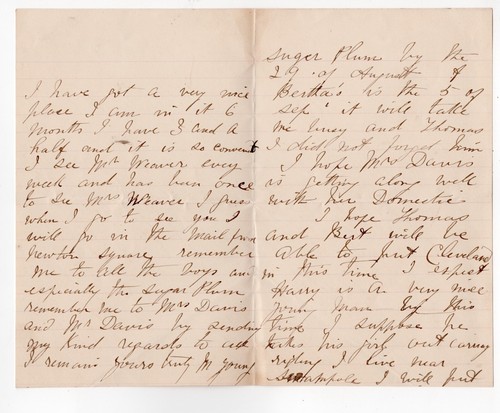 I have got a very nice
place I am in it 6
months I have 3 and a
half and it is so convent
I see Mr Weaver every
week and has been once
to see Mrs Weaver I guess
when I go to see you I
will go in the Mail from
Newton Square remember
me to all the boys and
especially the sugar Plum
remember me to Mrs Davis
and Mr Davis by sending
my kind regards to all
I remain yours truly M Young
suger Plum by the
29 of August &
Bertha's is the 5 of
sep it will take
me busy and Thomas
I did not forget him
I hope Mrs Davis
is getting along well
with her Domestic
I hope Thomas
and Bert will be
able to put Cleveland
in this time I expect
Harry is a very nice
young Man by this
time I suppose he
takes his girl out
riding I live near
I will put